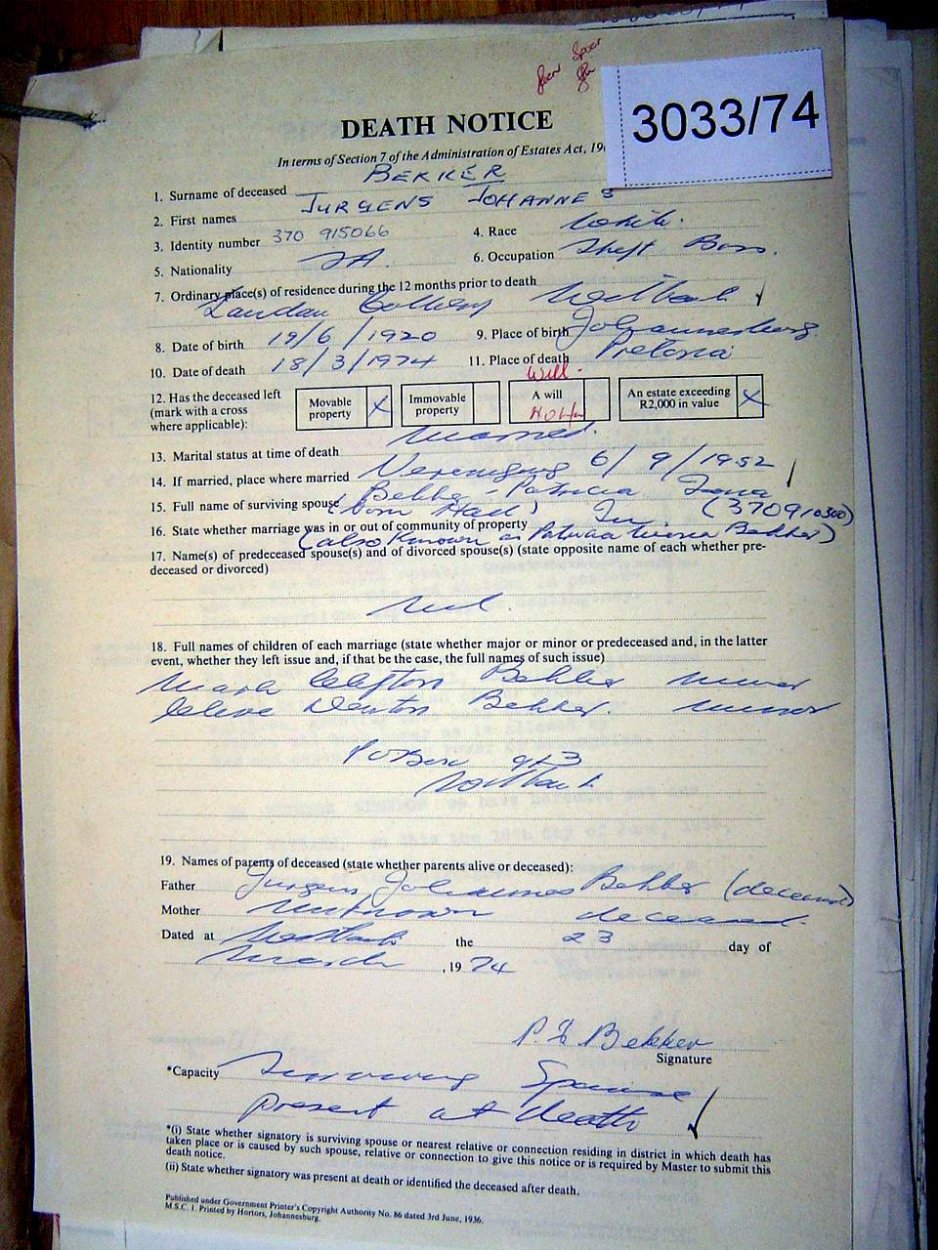 3033/74
DEATH NOTICE
In terms of Section 7 of the Administration of Estates Act, 19
1. Surname of deceased BEKKER
2. First names JURGENS JOHANNES
3. Identity number 370 915066 4. Race White.
5. Nationality SA. 6. Occupation Shift Boss.
7. Ordinary place(s) of residence during the 12 months prior to death
Landau Colliery Witbank
8. Date of birth 19/6/1920 9. Place of birth Johannesburg
10. Date of death 18/3/1974 11. Place of death Pretoria
Will.
12. Has the deceased left (mark with a cross where applicable): Movable property X Immovable property A will An estate exceeding R2,000 in value X
13. Marital status at time of death Married.
14. If married, place where married Vereeniging 6/9/1952
15. Full name of surviving spouse Bekker - Patricia (370910300)
(born Hall) In
16. State whether marriage was in or out of community of property
(also known as Patricia Bekker)
17. Name(s) of predeceased spouse(s) and of divorced spouse(s) (state opposite name of each whether pre-
deceased or divorced)
Nil.
18. Full names of children of each marriage (state whether major or minor or predeceased and, in the latter
event, whether they left issue and, if that be the case, the full names of such issue)
Mark Clifton Bekker minor
Clive Denton Bekker. minor
P O Box 913
Witbank
19. Names of parents of deceased (state whether parents alive or deceased):
Father Jurgens Johannes Bekker (deceased)
Mother Unknown deceased.
Dated at Witbank the 23 day of
March , 1974
P. L. Bekker
Signature
*Capacity Surviving Spouse
present at death
*(i) State whether signatory is surviving spouse or nearest relative or connection residing in district in which death has
taken place or is caused by such spouse, relative or connection to give this notice or is required by Master to submit this
death notice.
(ii) State whether signatory was present at death or identified the deceased after death.
Published under Government Printer's Copyright Authority No. 86 dated 3rd June, 1936.
M.S.C. 1. Printed by Hortors, Johannesburg.